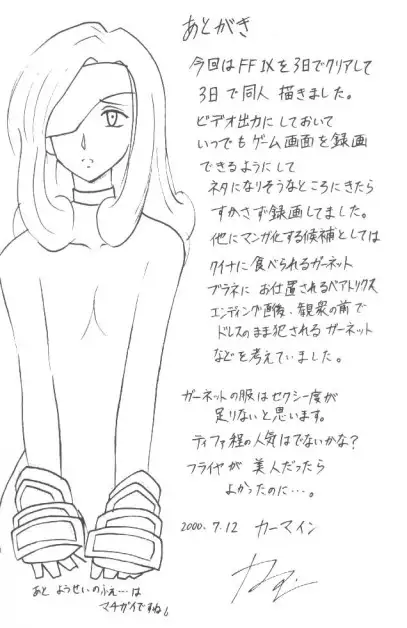 あとがき
今回はFFIXを3日でクリアして
3日で同人描きました。
ビデオ出力にしておいて
いつでもゲーム画面を録画
できるようにして
ネタになりそうなところにきたら
すかさず録画してました。
他にマンガ化する候補としては
クイナに食べられるガーネット
ブラネにお仕置されるベアトリクス
エンディング画後、観衆の前で
ドレスのまま犯されるガーネット
などを考えていました。
ガーネットの服はセクシー度が
足りないと思います。
ティファ程の人気はでないかな?
フライヤが美人だったら
よかったのに…。
2000.7.12 カーマイン
あと ようせいのふえ…は
マチガイですね